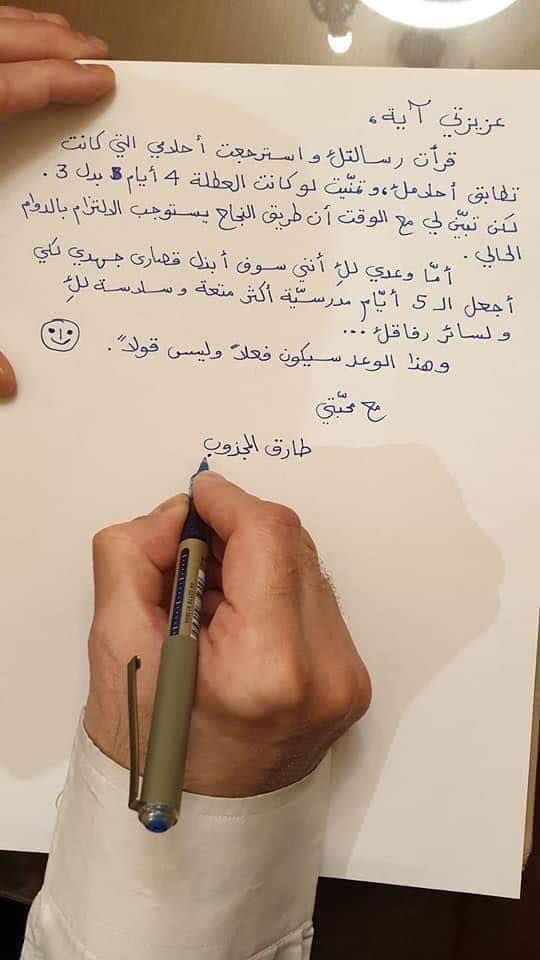 عزيزتي آية،
قرأت رسالتك واسترجعت أحلامي التي كانت
تطابق أحلامك، وتمنّيت لو كانت العطلة 4 أيام بدل 3.
لكن تبيّن لي مع الوقت أن طريق النجاح يستوجب الالتزام بالدوام
الحالي.
أمّا وعدي لكِ أنني سوف أبذل قصارى جهدي لكي
أجعل الـ 5 أيّام مدرسيّة أكثر متعة وسلاسة لكِ
ولسائر رفاقك ...
وهذا الوعد سيكون فعلاً وليس قولاً.
مع محبّتي
طارق المجذوب